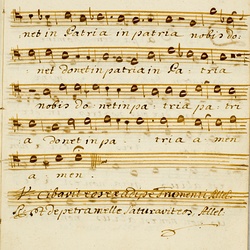 net in Patria in patria nobis do=
net donet in patria in Pa: tria
nobis do net in pa: tria pa: tri
a, donet in pa tria a men
a men.
V. Cibavit eos ex adipe frumenti, Allel.
R. Et de petra melle saturavit eos, Allel.